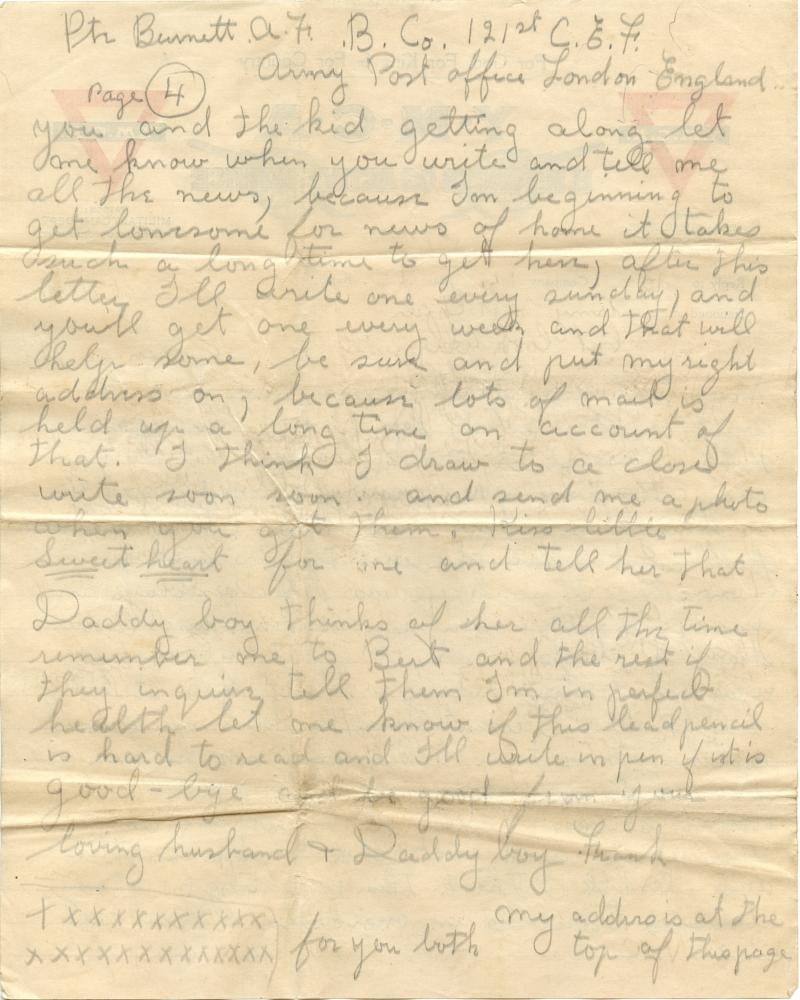 Pte Burnett. A. F. B. Co. 121st C. E. F.
Army Post office London England
Page 4
you and the kid getting along let
me know when you write and tell me
all the news, because I'm beginning to
get lonesome for news of home it takes
such a long time to get here, after this
letter I'll write one every sunday, and
you'll get one every week and that will
help some, be sure and put my right
address on, because lots of mail is
held up a long time on account of
that. I think I draw to a close
write soon soon. and send me a photo
when you get them. Kiss little
Sweet heart for me and tell her that
Daddy boy thinks of her all the time
remember me to Bert and the rest if
they inquire tell them I'm in perfect
health let me know if this lead pencil
is hard to read and I'll write in pen if it is
good-bye and be good from your
loving husband + Daddy boy Frank
+ x x x x x x x x x x
x x x x x x x x x x x x x
for you both
my address is at the
top of this page